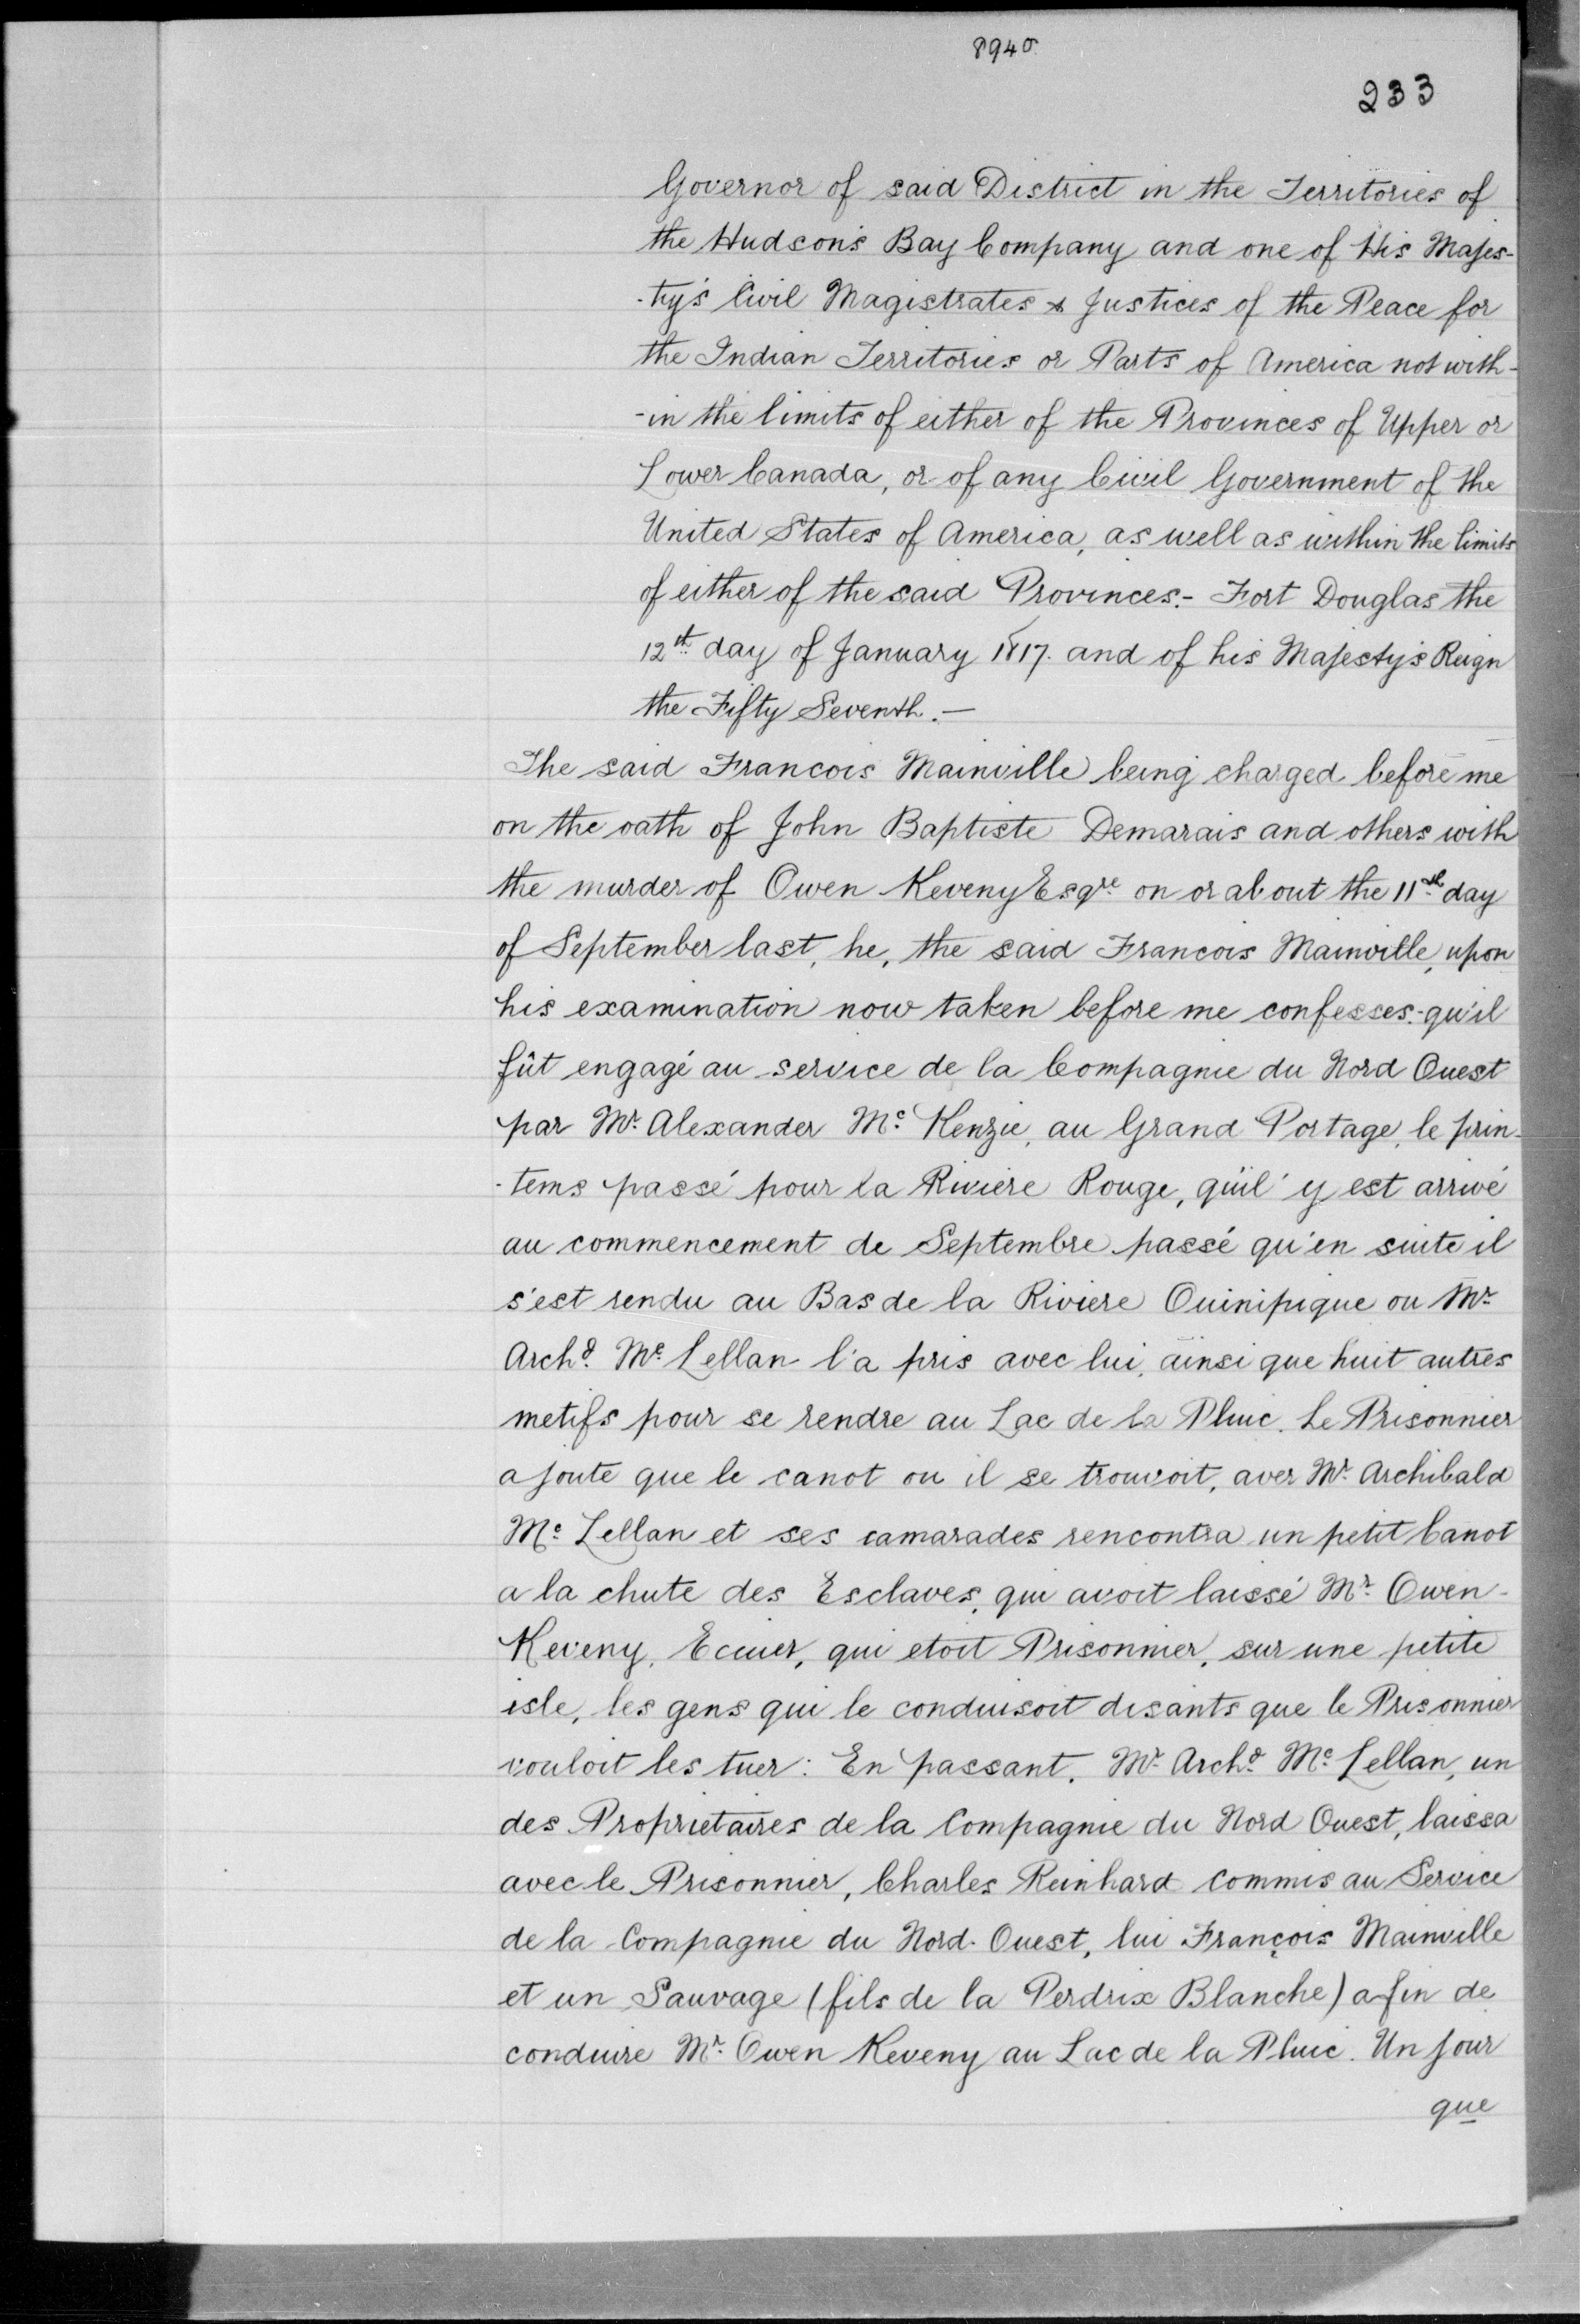 8940
233
Governor of said District in the Territories of
the Hudson's Bay Company and one of His Majes-
-ty's Civil Magistrates & Justices of the Peace for
the Indian Territories or Parts of America not with-
-in the limits of either of the Provinces of Upper or
Lower Canada, or of any Civil Government of the
United States of America, as well as within the limits
of either of the said Provinces.- Fort Douglas the
12th day of January 1817. and of his Majesty's Reign
the Fifty Seventh.—
The said Francois Mainville being charged before me
on the oath of John Baptiste Demarais and others with
the murder of Owen Keveny Esqre on or about the 11th day
of September last, he, the said Francois Mainville, upon
his examination now taken before me confesses.- qu'il
fût engagé au service de la Compagnie du Nord Ouest
par Mr. Alexander Mc. Kenzie, au Grand Portage, le prin-
-tems passé pour la Riviere Rouge, qu'il y est arrivé
au commencement de Septembre passé qu'en suite il
s'est rendu au Bas de la Riviere Ouinipique ou Mr.
Archd. Mc. Lellan l'a pris avec lui, ainsi que huit autres
metifs pour se rendre au Lac de la Pluie. Le Prisonnier
ajoute que le canot ou il se trouvoit, aver Mr. Archibald
Mc. Lellan et ses camarades rencontra un petit Canot
a la chute des Esclaves, qui avoit laissé Mr. Owen
Keveny, Ecuier, qui etoit Prisonnier, sur une petite
isle, les gens qui le conduisoit disants que le Prisonnier
vouloit les tuer: En passant, Mr. Archd. Mc. Lellan, un
des Proprietaires de la Compagnie du Nord Ouest, laissa
avec le Prisonnier, Charles Reinhard Commis au Service
de la Compagnie du Nord-Ouest, lui François Mainville
et un Sauvage (fils de la Perdrix Blanche) afin de
conduire Mr. Owen Keveny au Lac de la Pluie. Un jour
que